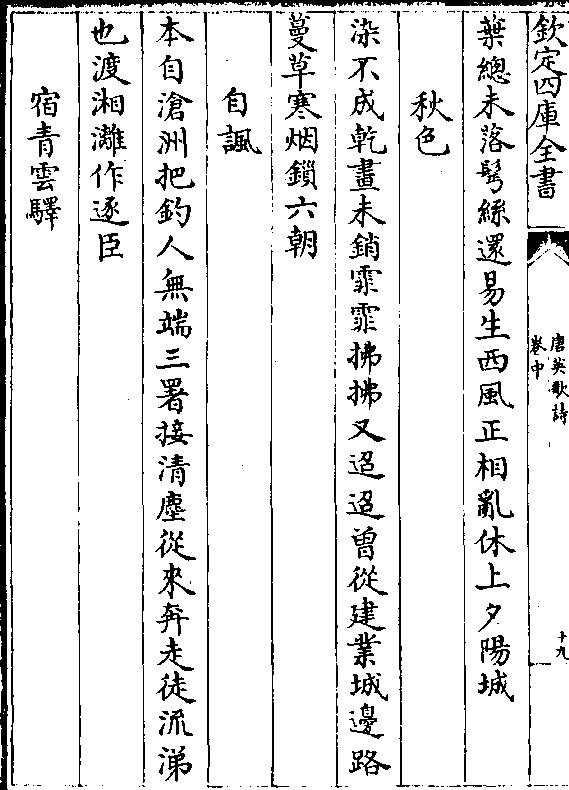 欽定四庫全書
唐英歌詩
卷中
十九
葉總未落鬢絲還易生西風正相亂休上夕陽城
秋色
染不成乾畫未銷霏霏拂拂又迢迢曾從建業城邊路
蔓草寒烟鎖六朝
自諷
本自滄洲把釣人無端三署接清塵從來奔走徒流涕
也渡湘灕作逐臣
宿青雲驛